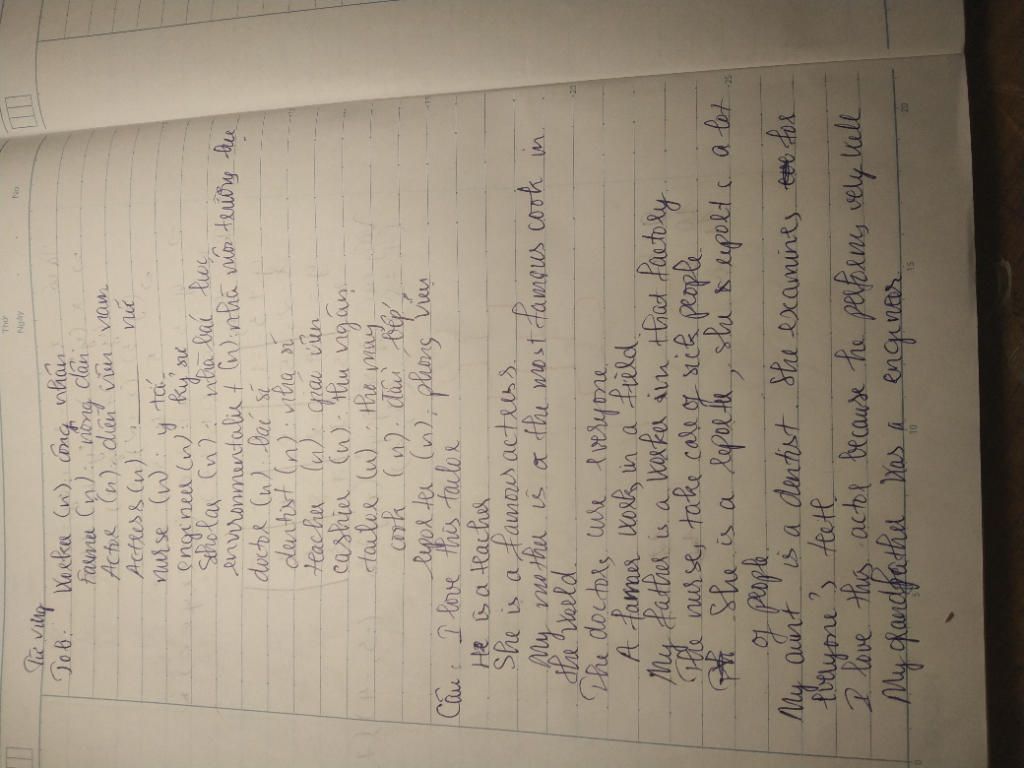 Thứ
Ngày
No
Từ vựng
Job: Worker (n): công nhân
Farmer (n): nông dân
Actor (n): diễn viên nam
Actress (n): nữ
nurse (n): y tá
engineer (n): kỹ sư
Sholar (n): nhà bác học
environmentalist (n): nhà môi trường học
doctor (n): bác sĩ
dentist (n): nha sĩ
teacher (n): giáo viên
cashier (n): thu ngân
tailor (n): thợ may
cook (n): đầu bếp
reporter (n): phóng viên
Câu: I love this tailor
He is a teacher
She is a famous actress
My mother is a the most famous cook in
the world
The doctors cure everyone
A farmer works in a field
My father is a worker in that factory
The nurses take care of sick people
She is a reporter, she reports a lot
of people
My aunt is a dentist. She examines for
everyone's teeth
I love this actor because he performs very well
My grandfather was a engineer
0
5
10
15
20
25